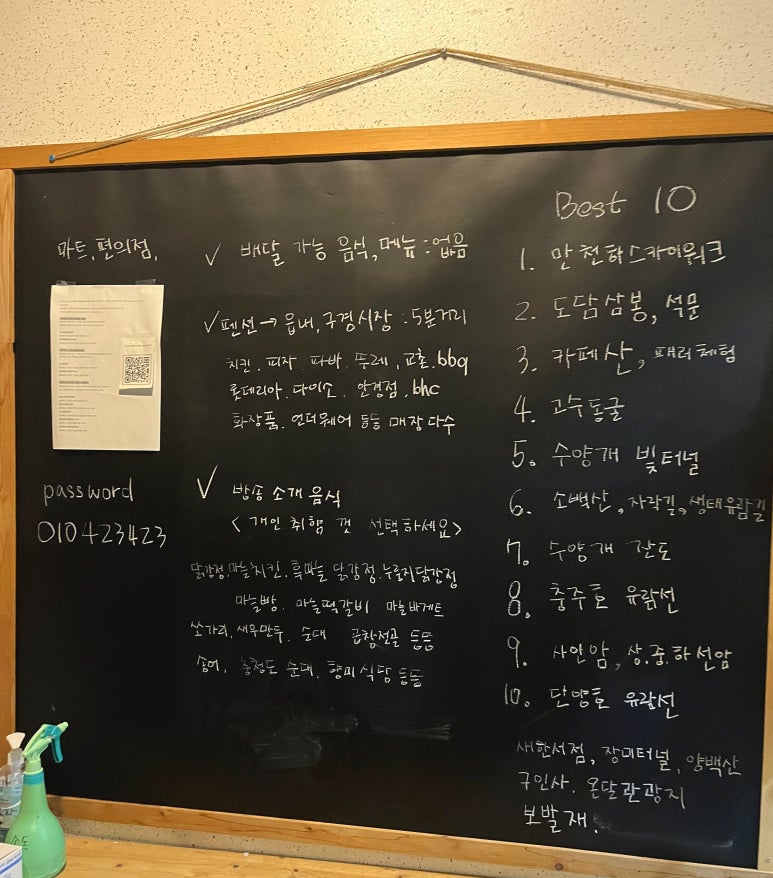 마트, 편의점,
password
010423423
✓ 배달 가능 음식, 메뉴 : 없음
✓ 펜션 → 읍내, 구경시장 : 5분거리
치킨, 피자, 파바, 뚜레, 교촌, bbq
롯데리아, 다이소, 안경점, bhc
화장품, 언더웨어 등등 매장 다수
✓ 방송 소개 음식
< 개인 취향 껏 선택하세요>
닭강정, 마늘치킨, 흑마늘 닭강정, 누룽지닭강정
마늘빵, 마늘떡갈비 마늘바게트
쏘가리, 새우만두, 순대 곱창전골 등등
송어, 충청도 순대, 향미식당 등등
Best 10
1. 만천하스카이워크
2. 도담삼봉, 석문
3. 카페산, 패러체험
4. 고수동굴
5. 수양개 빛터널
6. 소백산, 자락길, 생태유람길
7. 수양개 잔도
8. 충주호 유람선
9. 사인암, 상.중.하선암
10. 단양호 유람선
새한서점, 장미터널, 양백산
구인사, 온달관광지
보발재,